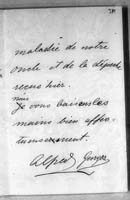 maladie de notre
oncle et de la dépeche
reçus hier.
nous
vous baisons les
mains bien affec-
tueusement.
Alfred